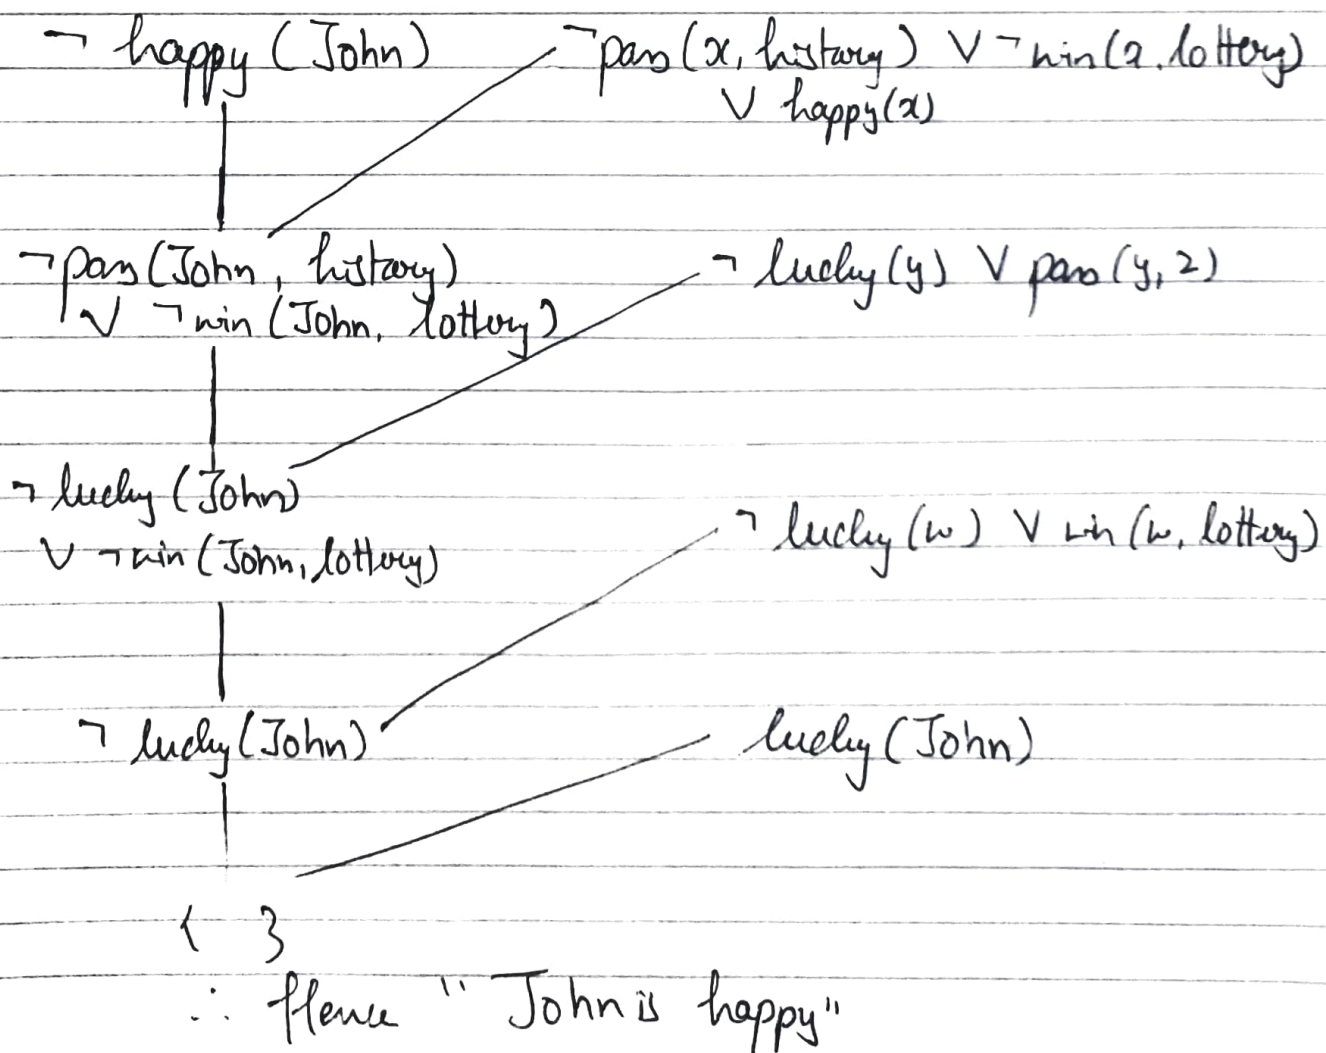 ¬ happy (John)
¬pass (x, history) ∨ ¬win(x, lottery)
∨ happy(x)
¬pass (John, history)
∨ ¬win (John, lottery)
¬ lucky (y) ∨ pass (y, z)
¬ lucky (John)
∨ ¬win (John, lottery)
¬ lucky (w) ∨ win (w, lottery)
¬ lucky (John)
lucky (John)
{ }
∴ Hence "John is happy"